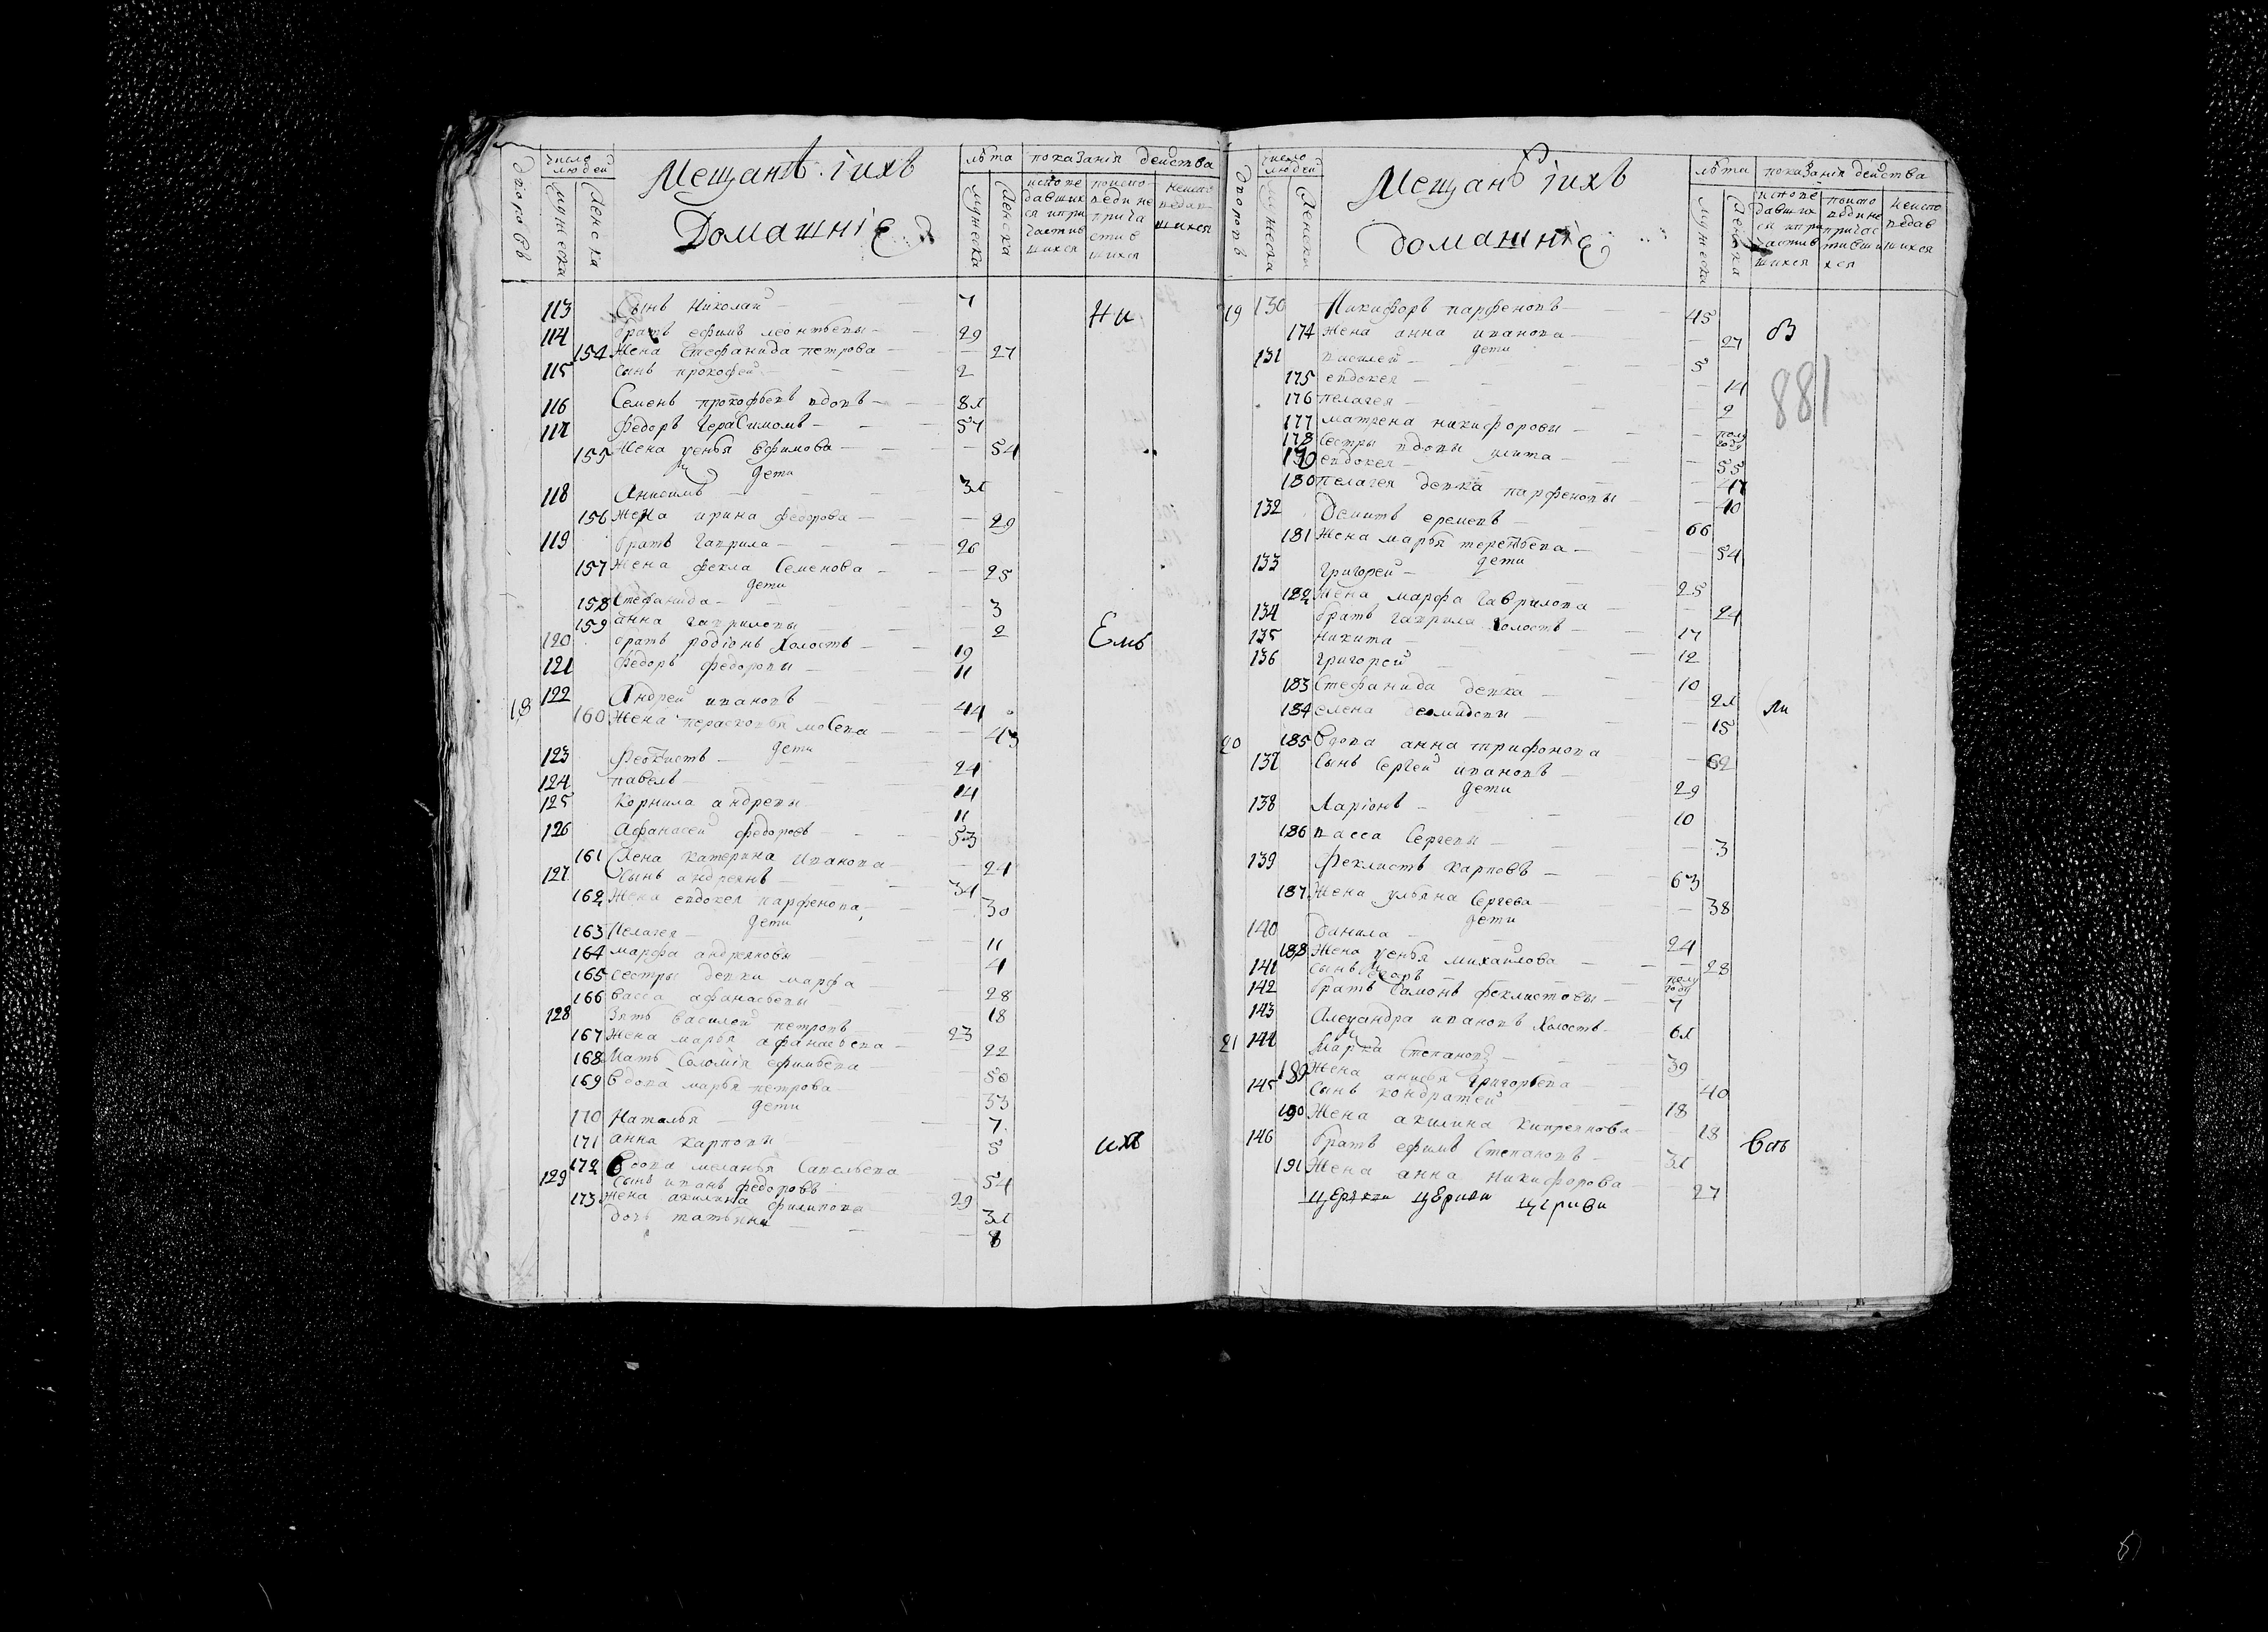 дворовъ
число людей
мужеска
женска
Мещанѣ. iихъ
Домашнiе
лѣта
мужеска
женска
показанiя действа
испове давших ся и при частив шихся
по испо веди не прича стив шихся
неиспо ведав шихся
113 Сынъ Николай 7
114 братъ ефимъ леонтьевы 29
154 Жена Стефанида петрова 27
115 сынъ прокофей 2
116 Семенъ прокофьевъ вдовъ
117 Федоръ Герасимовъ
155 Жена Ѯенья Ефимова 54
дети
118 Анисимъ
156 Жена ирина федорова 29
119 братъ гаврила 26
157 Жена фекла Семенова 25
дети
158 Стефанида 3
159 анна гавриловы 2
120 братъ родiонъ Холостъ 19
121 Федоръ федоровы 11
18 122 Андрей ивановъ 44
160 Жена парасковья мосева 43
дети
123 феоктистъ 24
124 павелъ 14
125 Корнила андревы 11
126 Афанасей федоровъ 53
161 Жена катерина иванова 24
127 Сынъ андреянъ 34
162 Жена евдокея парфенова 30
дети
163 Пелагея 11
164 марфа андреяновы 4
165 сестры девки марфа 28
166 васса афанасьевы 18
128 Зять василей петровъ 23
167 Жена марья афанасьева 22
168 Мать Соломiя ефимьева 50
169 вдова марья петрова 53
дети
170 Наталья 7
171 анна карповы 5
172 Вдова меланья Савельева 54
129 Сынъ иванъ федоровъ 29
173 Жена акилина филипова
дочь татьяна 8
Ни
Емъ
ихъ
дворовъ
число людей
мужеска
женска
Мещанѣ iихъ
домашнiе
лѣта
мужеска
женска
показанiя действа
испове давших ся и при частив шихся
по испо веди не причас тивши хся
неиспо ведав шихся
19 130 Никифоръ парфеновъ 45
174 Жена анна иванова 27
дети
131 василей 5
175 евдокея 14
176 пелагея 2
177 матрена никифоровы полу году
178 Сестры вдовы улита 55
евдокея 47
180 пелагея девка парфеновы 40
132 Демитъ еремевъ 66
181 Жена марья терентьева 54
дети
133 григорей 25
182 Жена марфа гаврилова 24
134 братъ гаврила Холостъ 17
135 никита 12
136 григорей 10
183 Стефанида девка
184 елена деомидовы 15
20 185 вдова анна трифонова 62
137 Сынъ Сергей ивановъ 29
дети
138 Ларiонъ 10
186 васса Сергевы 3
139 Феклистъ карповъ 63
187 Жена ульяна Сергева 38
дети
140 Данила 24
188 Жена Ѯенья михайлова 28
141 сынъ полу году
142 братъ Самонъ феклистовы 7
143 Алеѯандра ивановъ Холостъ
21 144 Марка Степановъ 39
189 Жена анисья григорьева 40
145 Сынъ кондратей 18
190 Жена акилина киприянова 18
146 братъ ефимъ Степановъ
191 Жена анна никифорова 27
церкви церкви церкви
881